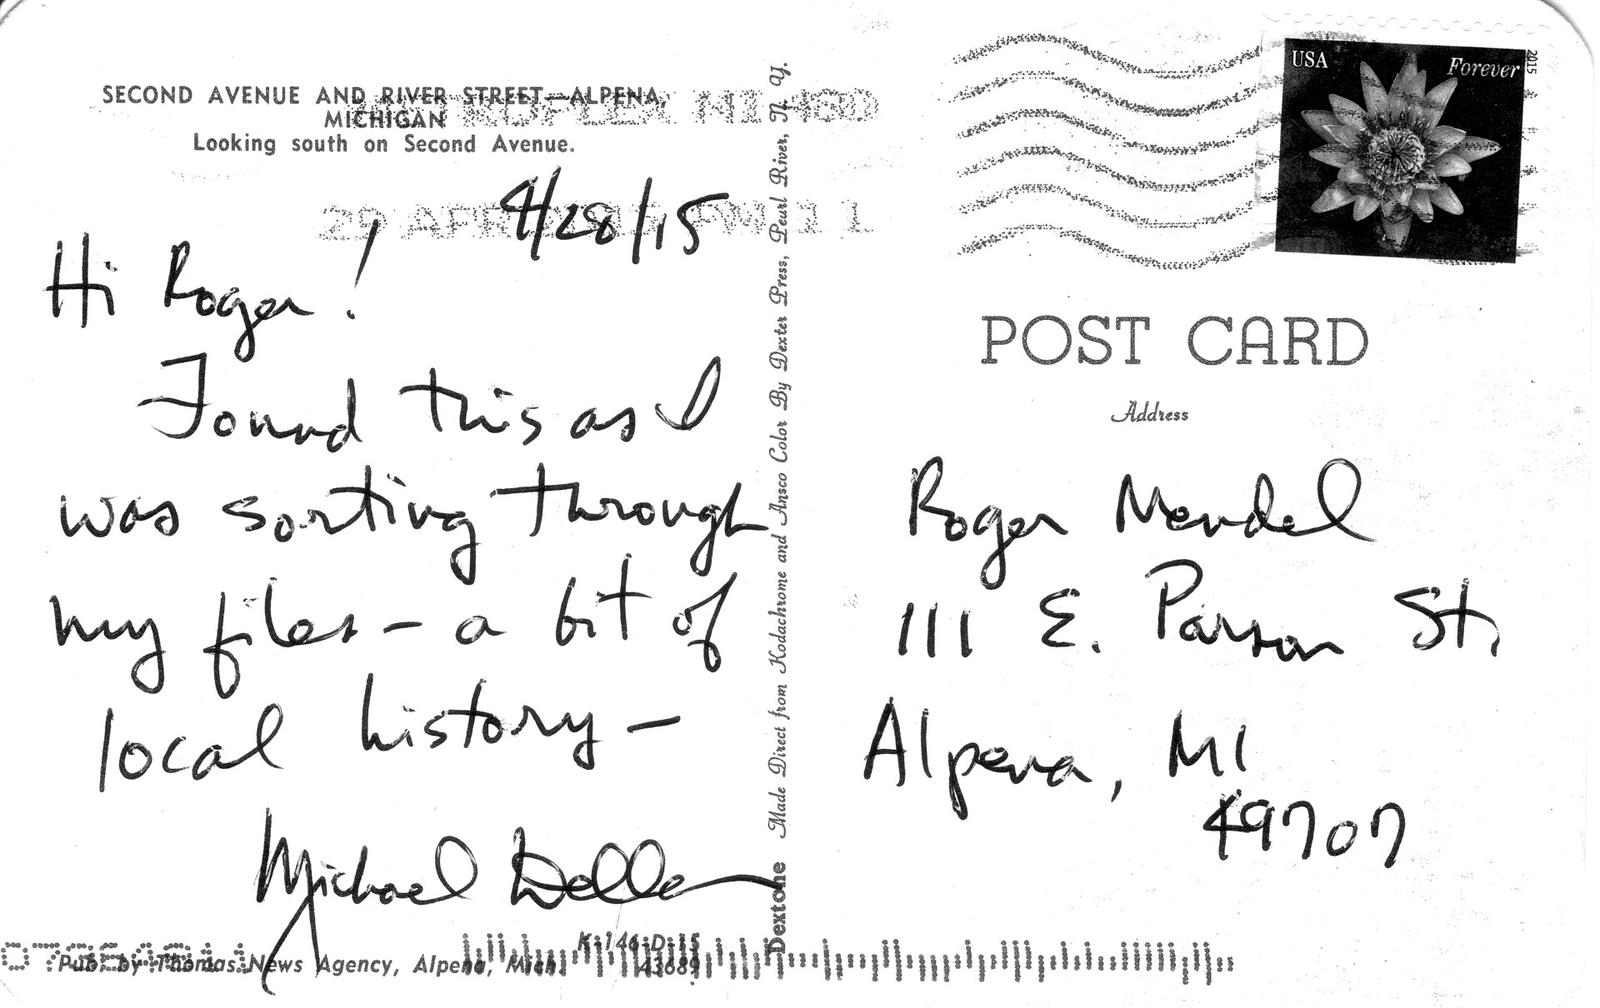 SECOND AVENUE AND RIVER STREET—ALPENA,
MICHIGAN
Looking south on Second Avenue.
29 APR
4/28/15
Hi Roger!
Found this as I
was sorting through
my files – a bit of
local history –
Michael
Dextone Made Direct from Kodachrome and Ansco Color By Dexter Press, Pearl River, N. Y.
K-146-D-15
Pub. by Thomas News Agency, Alpena, Mich. 43689
USA Forever
2015
POST CARD
Address
Roger Mendel
111 E. Parson St.
Alpena, MI
49707